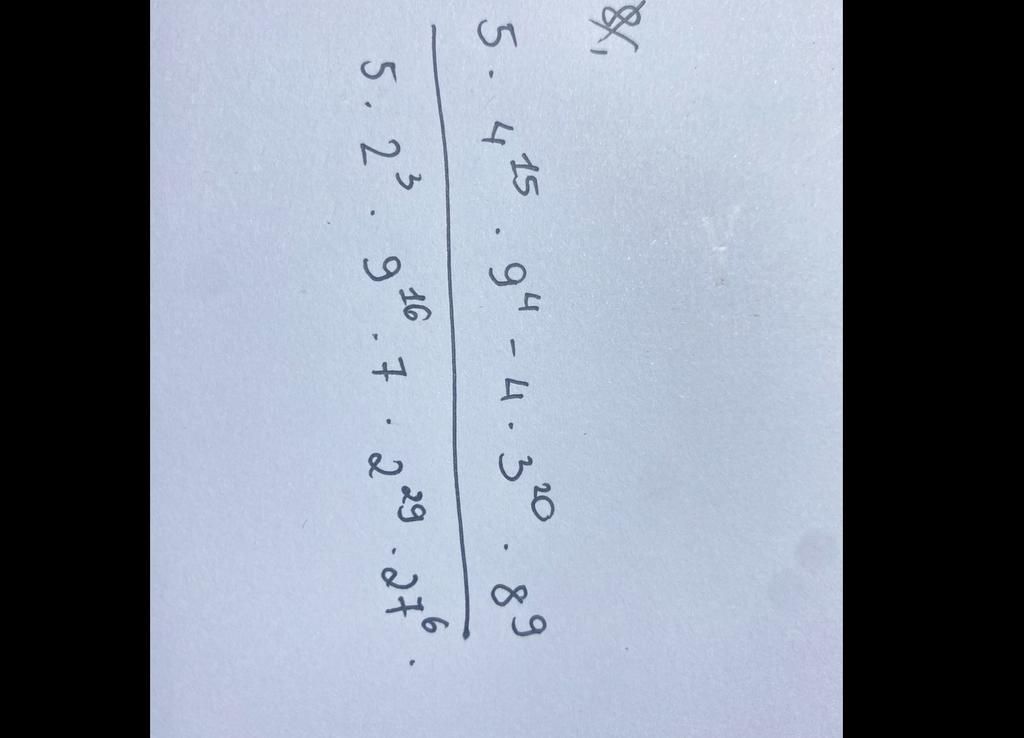 5 · 4^15 · 9^4 - 4 · 3^20 · 8^9
5 · 2^3 · 9^16 · 7 · 2^29 · 27^6 .